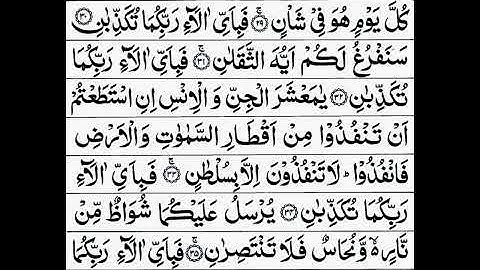 كُلَّ يَوْمٍ هُوَ فِيْ شَاْنٍ ۚ﴿۲۹﴾ فَبِاَيِّ اٰلَآءِ رَبِّكُمَا تُكَذِّبٰنِ ﴿۳۰﴾
سَنَفْرُغُ لَكُمْ اَيُّهَ الثَّقَلٰنِ ۚ﴿۳۱﴾ فَبِاَيِّ اٰلَآءِ رَبِّكُمَا
تُكَذِّبٰنِ ﴿۳۲﴾ يٰمَعْشَرَ الْجِنِّ وَ الْاِنْسِ اِنِ اسْتَطَعْتُمْ
اَنْ تَنْفُذُوْا مِنْ اَقْطَارِ السَّمٰوٰتِ وَ الْاَرْضِ
فَانْفُذُوْا ؕ لَا تَنْفُذُوْنَ اِلَّا بِسُلْطٰنٍ ۚ﴿۳۳﴾ فَبِاَيِّ اٰلَآءِ
رَبِّكُمَا تُكَذِّبٰنِ ﴿۳۴﴾ يُرْسَلُ عَلَيْكُمَا شُوَاظٌ مِّنْ
نَّارٍ ۙ وَّ نُحَاسٌ فَلَا تَنْتَصِرٰنِ ۚ﴿۳۵﴾ فَبِاَيِّ اٰلَآءِ رَبِّكُمَا